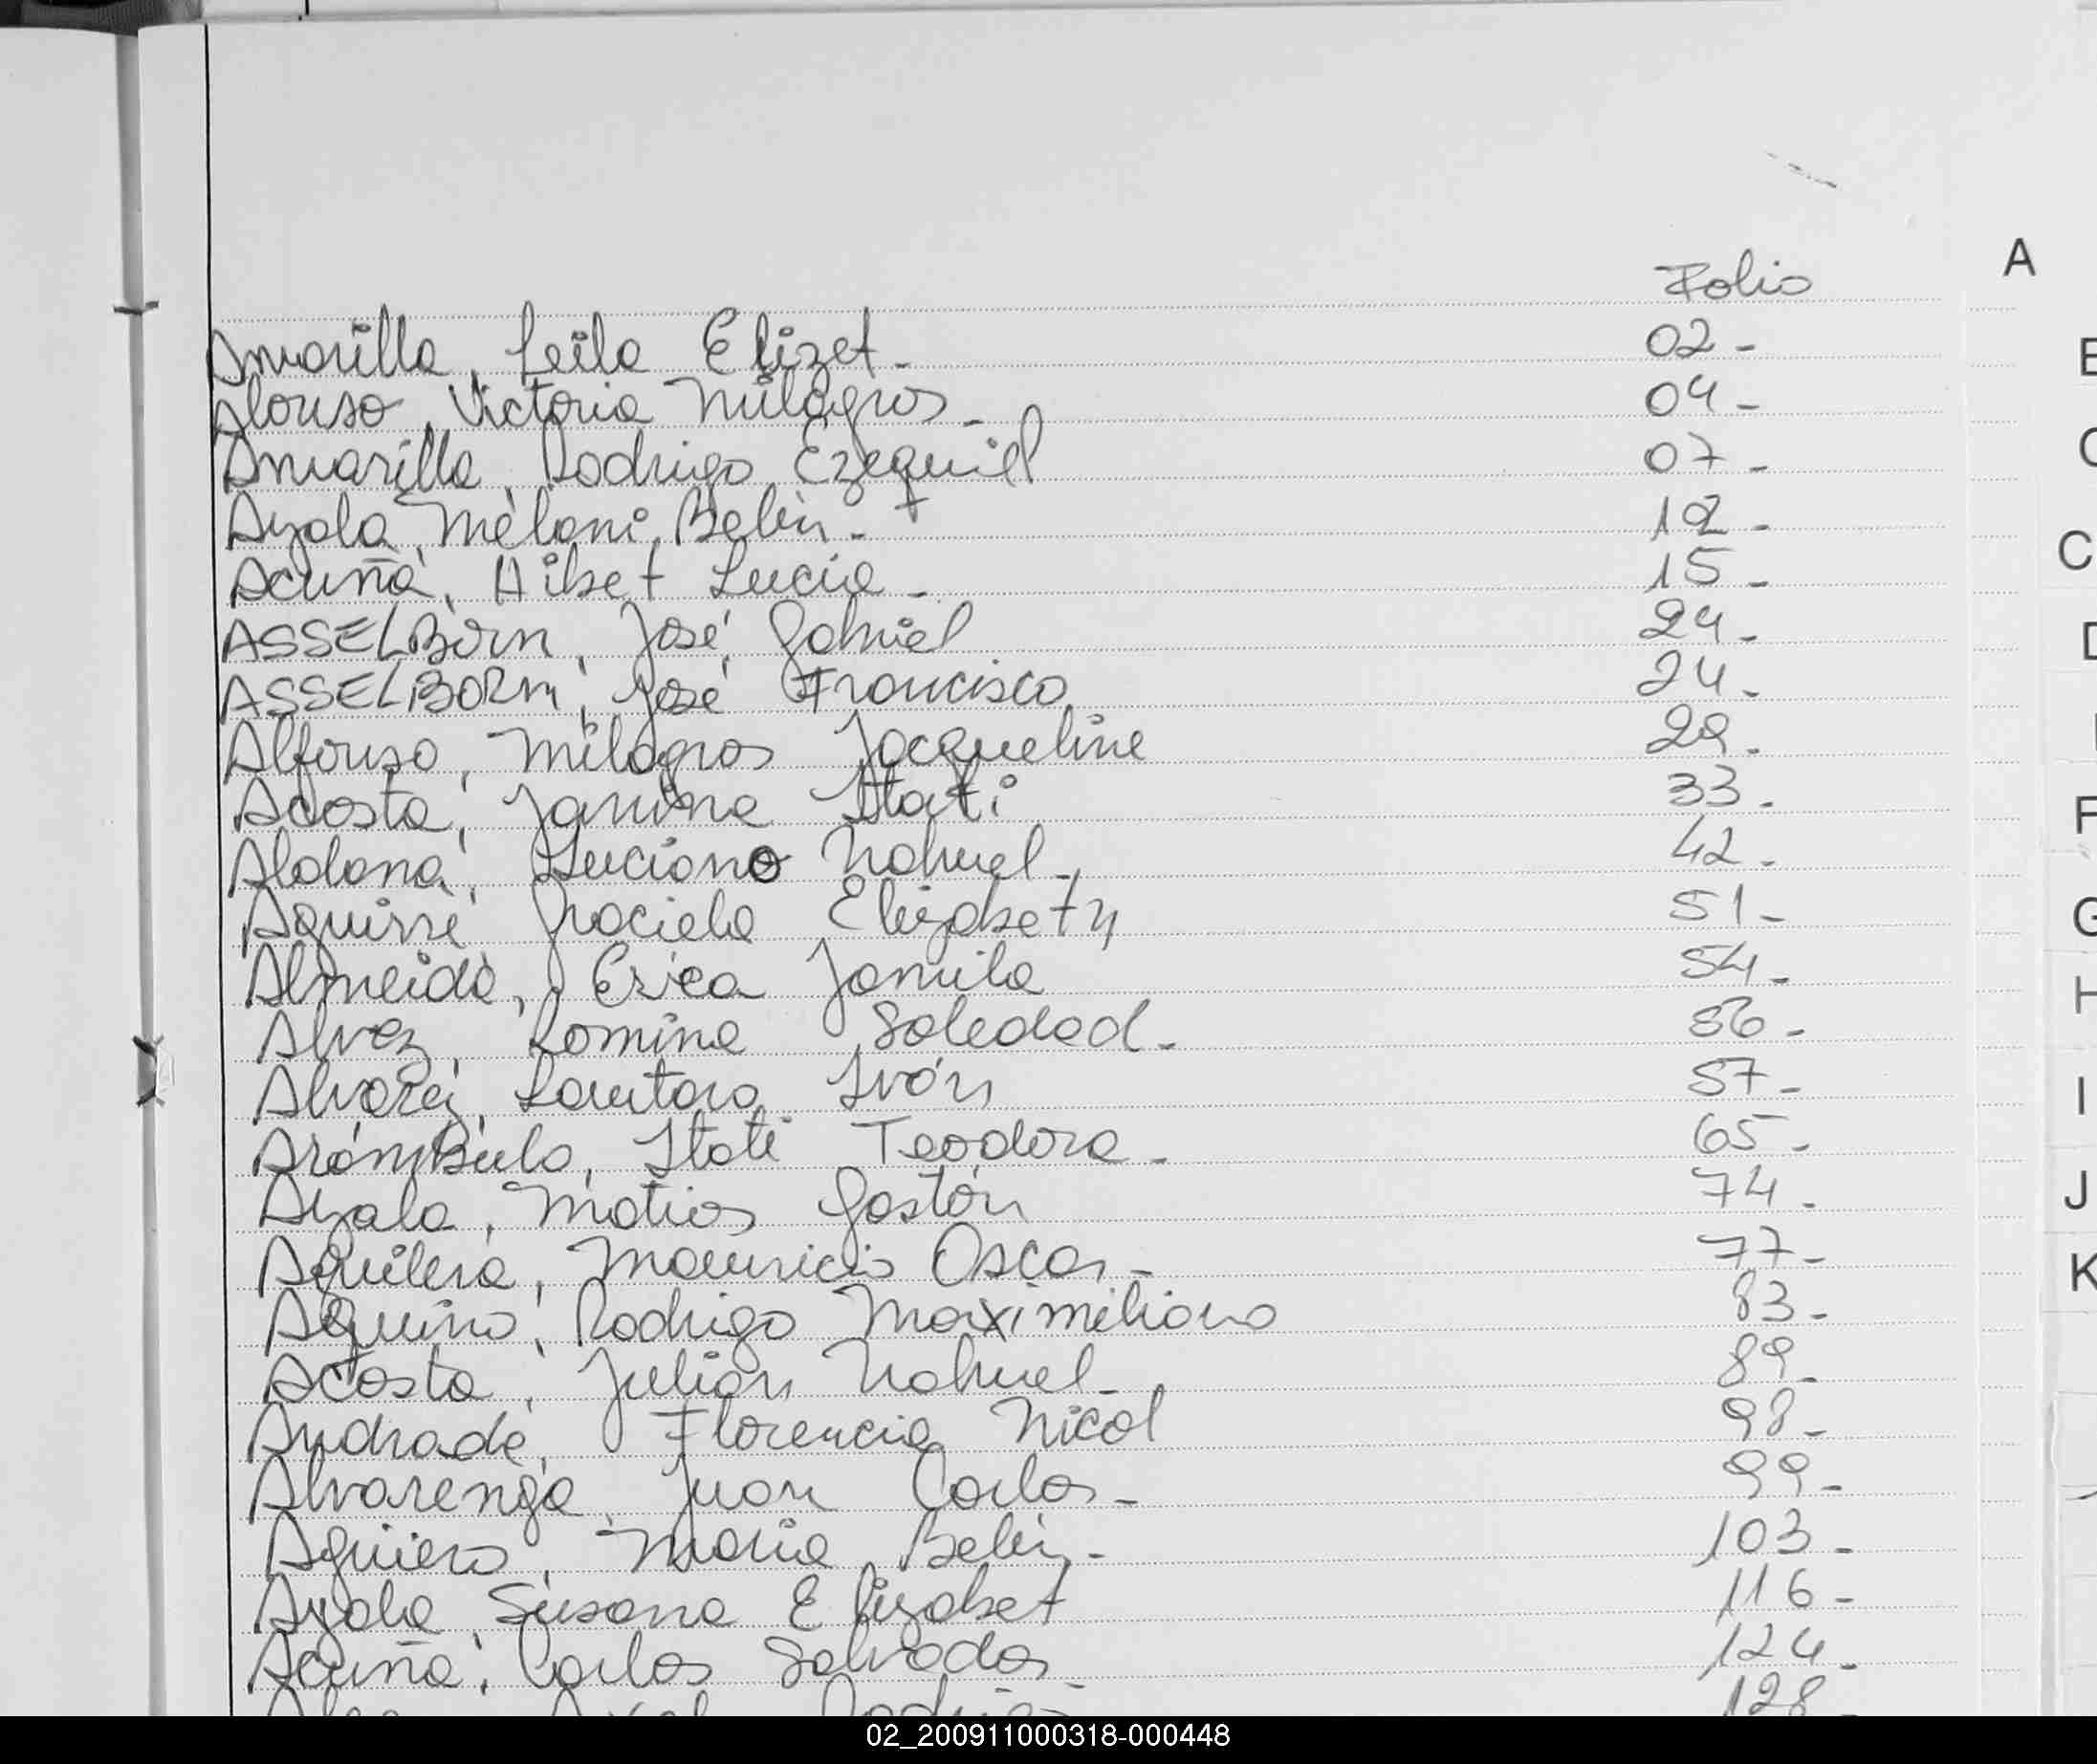 Folio
A
Amarilla, Leila Elizet- 02-
Alonso, Victoria Milagros- 04-
Amarilla, Rodrigo Ezequiel 07-
Ayala, Melani Belén- 12-
Acuña, Aibet Lucia- 15-
ASSELBorn, José Gabriel 24-
ASSELBORN, José Francisco 24-
Alfonso, Milagros Jacqueline 29-
Acosta, Janina Itati 33-
Aldana, Luciano Nahuel- 42-
Aguirre Graciela Elizabeth 51-
Almeida, Erica Jamila 54-
Alvez, Romina Soledad- 56-
Alvarez, Lautaro Iván 57-
Arámbulo, Itati Teodora- 65-
Ayala, Matias Gastón 74-
Aguilera, Mauricio Oscar- 77-
Aquino, Rodrigo Maximiliano 83-
Acosta, Julián Nahuel- 89-
Andrade, Florencia Nicol 98-
Alvarenga, Juan Carlos- 99-
Agüero, Maria Belén- 103-
Ayala, Susana Elizabet 116-
Acuña, Carlos Salvador 124-
Axel Rodrigo 128-
C
F
G
H
I
J
K
02_200911000318-000448